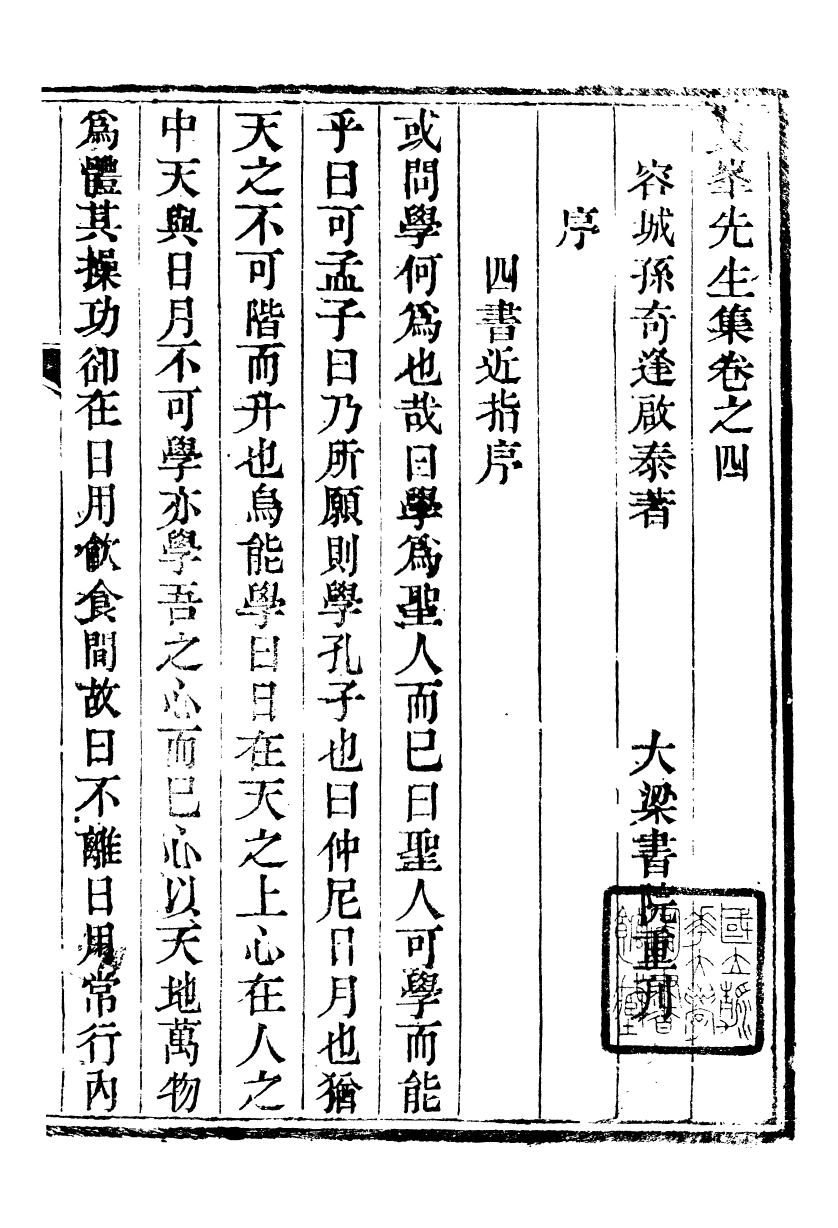 夏峯先生集卷之四
容城孫奇逢啟泰著　大梁書院重刊
序
四書近指序
或問學何爲也哉曰學爲聖人而已曰聖人可學而能
乎曰可孟子曰乃所願則學孔子也曰仲尼日月也猶
天之不可階而升也烏能學曰日在天之上心在人之
中天與日月不可學亦學吾之心而已心以天地萬物
爲體其操功卻在日用飮食間故曰不離日用常行內